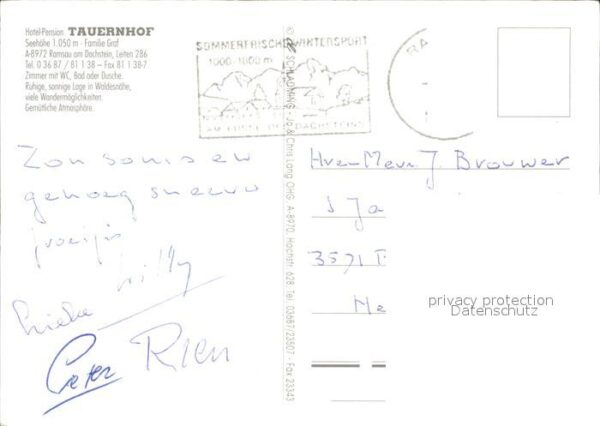 Hotel-Pension TAUERNHOF
Seehöhe 1.050 m · Familie Graf
A-8972 Ramsau am Dachstein, Leiten 286
Tel. 0 36 87 / 81 1 38 – Fax 81 1 38-7
Zimmer mit WC, Bad oder Dusche.
Ruhige, sonnige Lage in Waldesnähe,
viele Wandermöglichkeiten.
Gemütliche Atmosphäre.
SOMMERFRISCHE WINTERSPORT
1000-1000 m
AM FUSSE DES DACHSTEINS
RA
© SCHLADMING - Jo & Chris Lang OHG, A-8970, Hochstr. 628, Tel. 03687/23507 - Fax 23343
Zon
genoeg sneeuw
Willy
Lieke
Peter Rien
Hr en Mevr. J. Brouwer
3571 T
Me
privacy protection
Datenschutz